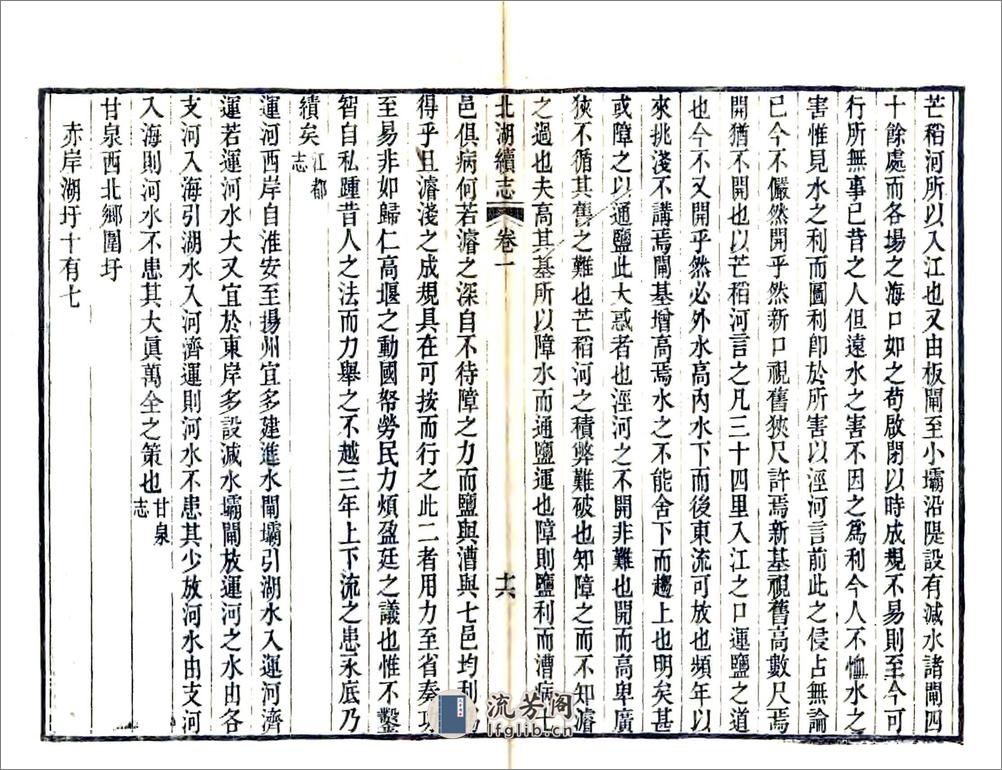 芒稻河所以入江也又由板閘至小壩沿隄設有減水諸閘四
十餘處而各場之海口如之苟啟閉以時成規不易則至今可
行所無事已昔之人但遠水之害不因之為利今人不恤水之
害惟見水之利而圖利卽於所害以涇河言前此之侵占無論
已今不儼然開乎然新口視舊狹尺許焉新基視舊高數尺焉
開猶不開也以芒稻河言之凡三十四里入江之口運鹽之道
也今不又開乎然必外水高內水下而後東流可放也頻年以
來挑淺不講焉閘基增高焉水之不能舍下而趨上也明矣甚
或障之以通鹽此大惑者也涇河之不開非難也開而高卑廣
狹不循其舊之難也芒稻河之積弊難破也知障之而不知濬
之過也夫高其基所以障水而通鹽運也障則鹽利而漕病七
北湖續志 卷一 十六
邑俱病何若濬之深自不待障之力而鹽與漕與七邑均利
得乎且濬淺之成規具在可按而行之此二者用力至省奏功
至易非如歸仁高堰之動國帑勞民力煩盈廷之議也惟不鑿
智自私踵昔人之法而力舉之不越三年上下流之患永底乃
績矣江都志
運河西岸自淮安至揚州宜多建進水閘壩引湖水入運河濟
運若運河水大又宜於東岸多設減水壩閘放運河之水由各
支河入海引湖水入河濟運則河水不患其少放河水由支河
入海則河水不患其大眞萬全之策也甘泉志
甘泉西北鄉圍圩
赤岸湖圩十有七
流芳阁
lfglib.cn